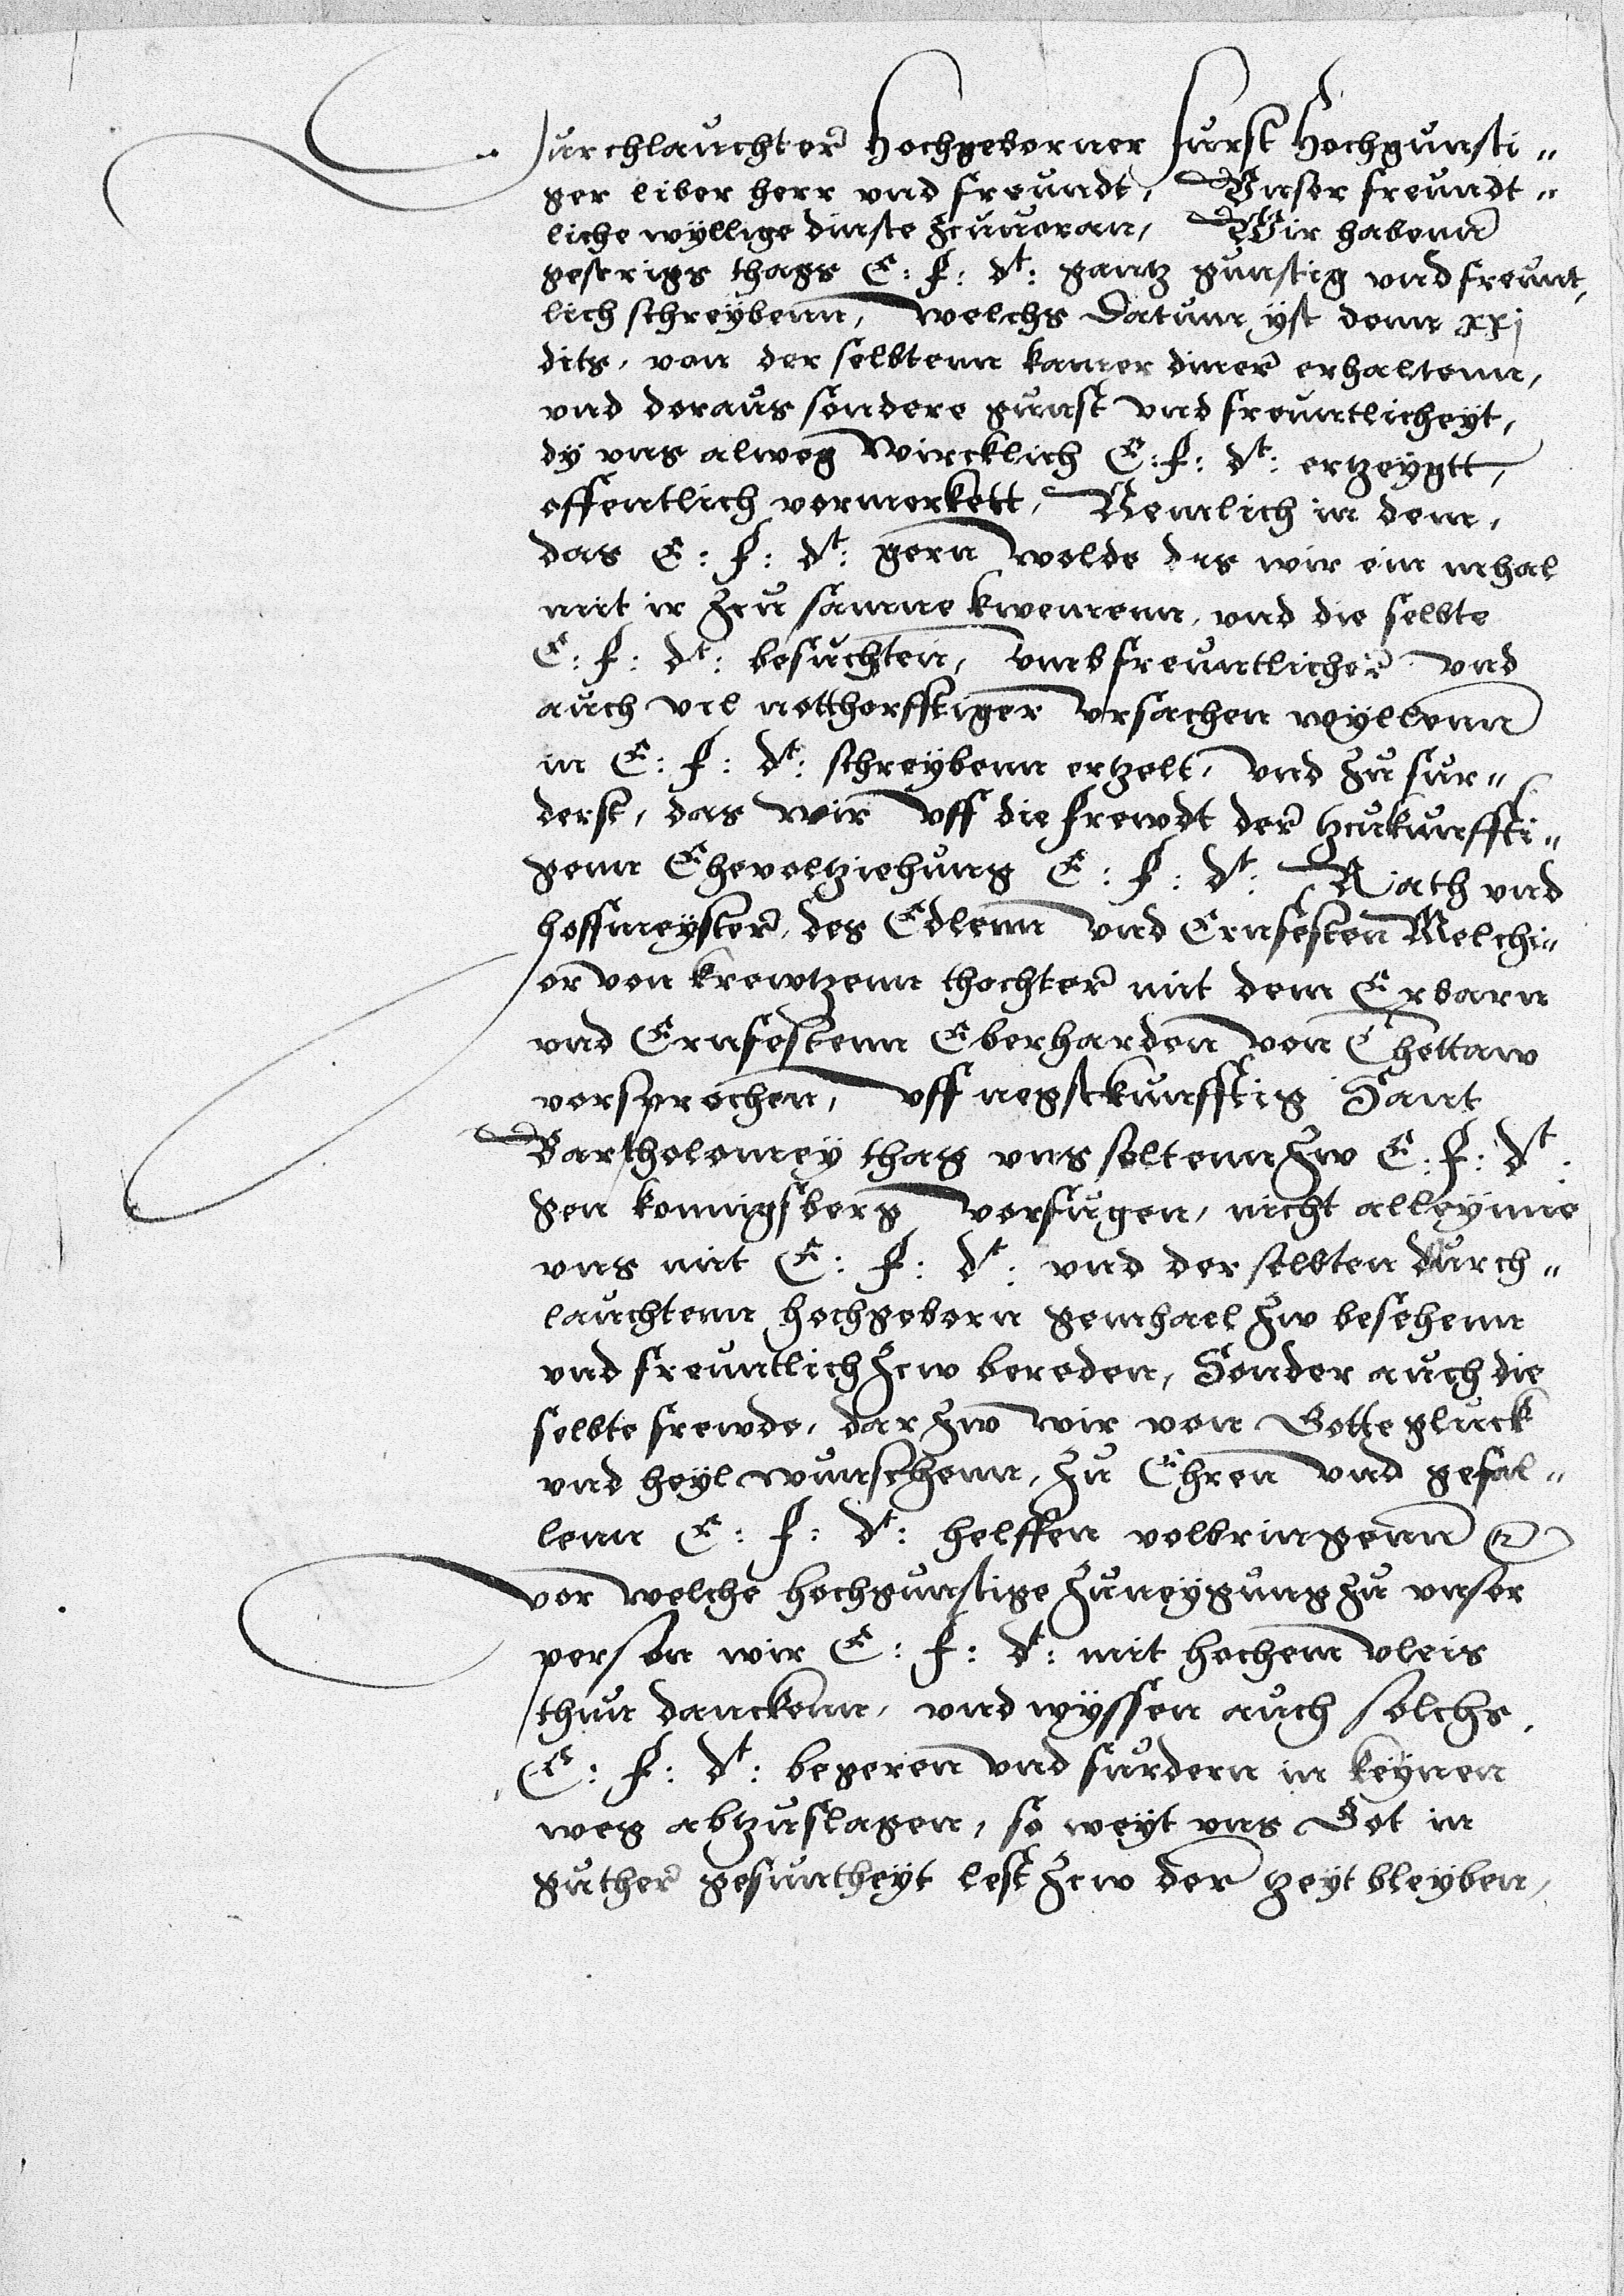 Durchlauchter Hochgeborner furst Hochgunsti„
ger liber herr vnd freundt, Vnser freundt„
liche wyllige dinste zcuuoran, Wir habenn
gestrigs thags E: f: dt: gantz gunstig vnd freunt,
lich schreybenn, welchs datum yst denn xxj
dits, von der selbtenn kamer diner erhaltenn,
vnd doraus sondere gunst vnd freuntlicheyt,
dy vns alweg wircklich E: f: dt: ertzeygtt,
offentlich vormerkett, Nemlich in dem,
das E: f: dt: gern wolde das wir ein mhal
mit ir zcu samne kwemenn, vnd die selbte
E: f: dt: besuchten, vmb freuntlicher vnd
auch vil notthorfftiger vrsachen wyllenn
in E: f: dt: schreybenn ertzelt, vnd zu fur„
derst, das wir vff die frewdt der tzukunffti„
genn Ehevoltziehung E: f: dt: Rath vnd
hoffmeyster, des Edlenn vnd Ernfesten Melchi„
or von krewtzenn thochter mit dem Erbarn
vnd Ernfestenn Eberharden von Thettaw
vorsprochen, vff negstkunfftig Sant
Bartholomey thag vns soltenn zw E: f: dt:
gen konnigsberg vorfugen, nicht alleynne
vns mit E: f: dt: vnd der selbten durch„
lauchtenn hochgeborn gemhael zw besehenn
vnd freuntlich zcw bereden, Sonder auch die
selbte frewde, dar zw wir von Gotte gluck
vnd heyl wunschenn, zu Ehren vnd gefal„
lenn E: f: dt: helffen volbringenn etc
vor welche hochgunstige zuneygung zu vnser
person wir E: f: dt: mit hochem vleis
thun danckenn, vnd wyssen auch solchs,
E: f: dt: begeren vnd furdern in keynen
weg abtzuslagen, so weyt vns Got in
guther gesuntheyt lest zcw der tzeyt bleyben,